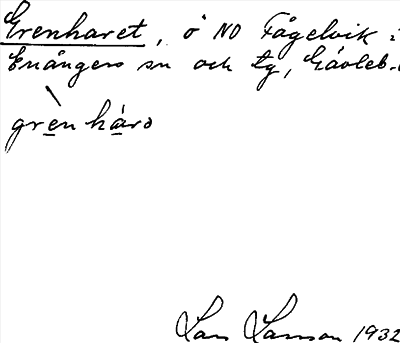 Grenharet, ö NO Fågelvik i
Enångers sn och tg, Gävleb.
gren háro
Lars Larsson 1932